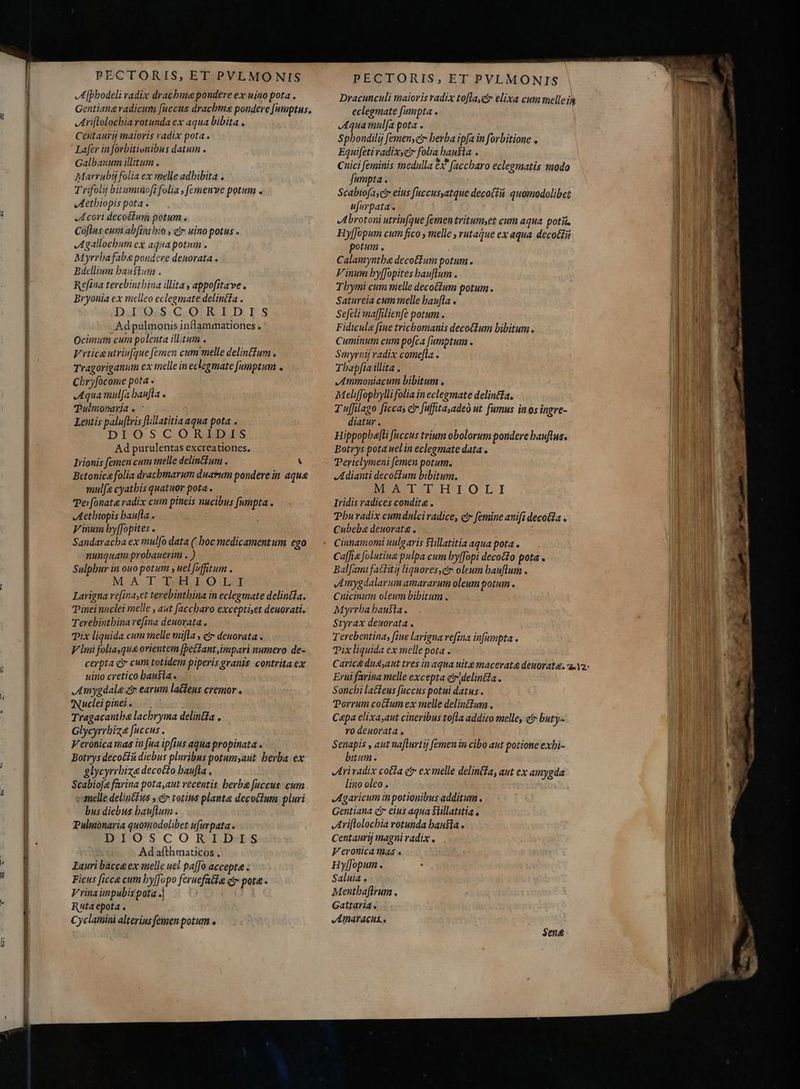 PECTORIS, ET PVLMONIS
Aſphodeli radix drachmæ pondere ex uino pota.
Gentianæ radicum ſuccus drachmæ pondere ſumptus.
Ariſtolochia rotunda ex aqua bibita.
Centaurij maioris radix pota.
Laſer in ſorbitionibus datum.
Galbanum illitum.
Marrubij folia ex melle adhibita.
Trifolij bituminoſi folia, ſemenve potum.
Aethiopis pota.
Acori decoctum potum.
Coſtus cum abſinthio, & uino potus.
Agallochum ex aqua potum.
Myrrha fabæ pondere deuorata.
Bdellium hauſtum.
Reſina terebinthina illita, appoſitave.
Bryonia ex melleo eclegmate delincta.
DIOSCORIDIS
Ad pulmonis inflammationes.
Ocimum cum polenta illitum.
Vrticæ utriuſque ſemen cum melle delinctum.
Tragoriganum ex melle in eclegmate ſumptum.
Chryſocome pota.
Aqua mulſa hauſta.
Pulmonaria.
Lentis paluſtris ſtillatitia aqua pota.
DIOSCORIDIS
Ad purulentas excreationes.
Irionis ſemen cum melle delinctum.
Betonicæ folia drachmarum duarum pondere in aquæ
mulſæ cyathis quatuor pota.
Perſonatæ radix cum pineis nucibus ſumpta.
Aethiopis hauſta.
Vinum hyſſopites.
Sandaracha ex mulſo data ( hoc medicamentum ego
nunquam probauerim. )
Sulphur in ouo potum, uel ſuffitum.
MATTHIOLI
Larigna reſina, et terebinthina in eclegmate delincta.
Pinei nuclei melle, aut ſaccharo excepti, et deuorati.
Terebinthina reſina deuorata.
Pix liquida cum melle miſta, & deuorata.
Vlmi folia, quæ orientem ſpectant, impari numero de-
cerpta & cum totidem piperis granis contrita ex
uino cretico hauſta.
Amygdalæ & earum lacteus cremor.
Nuclei pinei.
Tragacanthæ lachryma delincta.
Glycyrrhizæ ſuccus.
Veronica mas in ſua ipſius aqua propinata.
Botrys decoctū diebus pluribus potum, aut herba ex
glycyrrhizæ decocto hauſta.
Scabioſæ farina pota, aut recentis herbæ ſuccus cum
melle delinctus, & totius plantæ decoctum pluri
bus diebus hauſtum.
Pulmonaria quomodolibet uſurpata.
DIOSCORIDIS
Ad aſthmaticos.
Lauri baccæ ex melle uel paſſo acceptæ.
Ficus ſiccæ cum hyſſopo feruefactæ & potæ.
Vrina impubis pota.
Ruta epota.
Cyclamini alterius ſemen potum.
PECTORIS, ET PVLMONIS
Dracunculi maioris radix toſta, & elixa cum melle in
eclegmate ſumpta.
Aqua mulſa pota.
Sphondilij ſemen, & herba ipſa in ſorbitione.
Equiſeti radix, & folia hauſta.
Cnici ſeminis medulla ex ſaccharo eclegmatis modo
ſumpta.
Scabioſa, & eius ſuccus, atque decoctū quomodolibet
uſurpata.
Abrotoni utriuſque ſemen tritum, et cum aqua potū.
Hyſſopum cum fico, melle, rutaque ex aqua decoctū
potum.
Calamynthæ decoctum potum.
Vinum hyſſopites hauſtum.
Thymi cum melle decoctum potum.
Satureia cum melle hauſta.
Seſeli maſſilienſe potum.
Fidiculæ ſiue trichomanis decoctum bibitum.
Cuminum cum poſca ſumptum.
Smyrnij radix comeſta.
Thapſia illita.
Ammoniacum bibitum.
Meliſſophylli folia in eclegmate delincta.
Tuſſilago ſicca, & ſuffita, adeò ut fumus in os ingre-
diatur.
Hippophæſti ſuccus trium obolorum pondere hauſtus.
Botrys pota uel in eclegmate data.
Periclymeni ſemen potum.
Adianti decoctum bibitum.
MATTHIOLI
Iridis radices conditæ.
Phu radix cum dulci radice, & ſemine aniſi decocta.
Cubebæ deuoratæ.
Cinnamomi uulgaris ſtillatitia aqua pota.
Caſſiæ ſolutiuæ pulpa cum hyſſopi decocto pota.
Balſami factitij liquores, & oleum hauſtum.
Amygdalarum amararum oleum potum.
Cnicinum oleum bibitum.
Myrrha hauſta.
Styrax deuorata.
Terebentina, ſiue larigna reſina inſumpta.
Pix liquida ex melle pota.
Caricæ duæ, aut tres in aqua uitæ maceratæ deuoratæ.
Erui farina melle excepta & delincta.
Sonchi lacteus ſuccus potui datus.
Porrum coctum ex melle delinctum.
Cæpa elixa, aut cineribus toſta addito melle, & buty-
ro deuorata.
Senapis, aut naſturtij ſemen in cibo aut potione exhi-
bitum.
Ari radix cocta & ex melle delincta, aut ex amygda
lino oleo.
Agaricum in potionibus additum.
Gentiana & eius aqua ſtillatitia.
Ariſtolochia rotunda hauſta.
Centaurij magni radix.
Veronica mas.
Hyſſopum.
Saluia.
Menthaſtrum.
Gattaria.
Amaracus.
Senæ